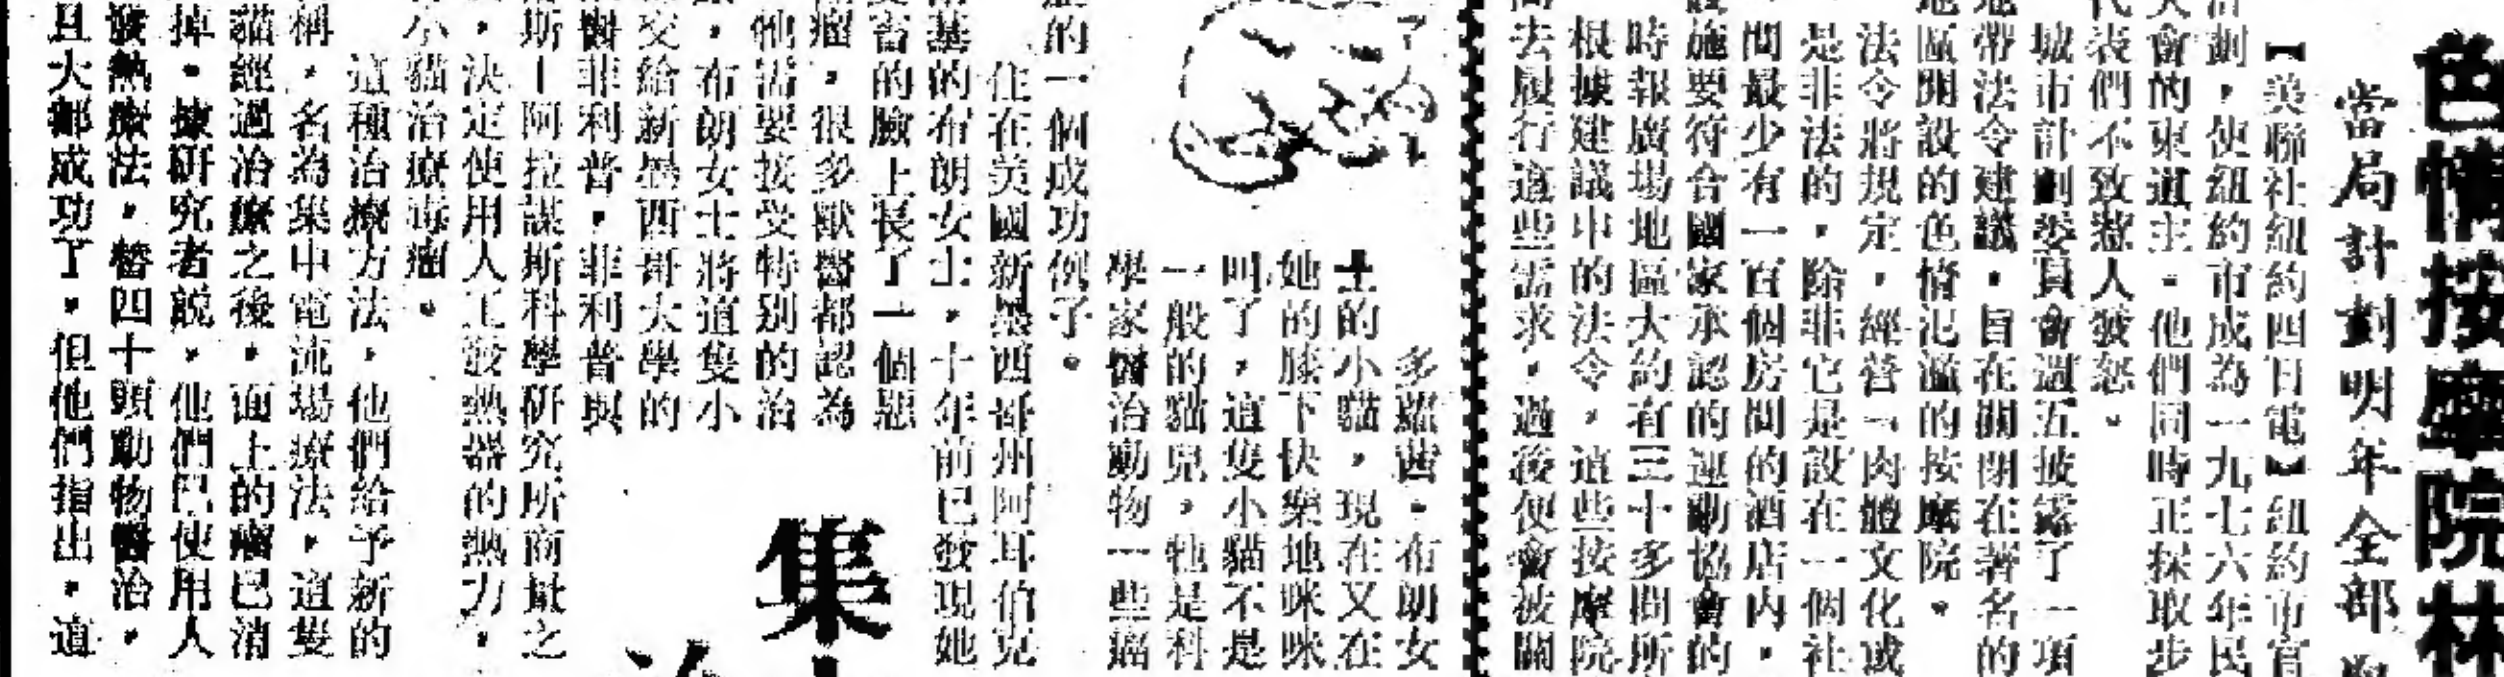 色情按摩院林
當局計劃明年全部
【美聯社紐約四日電】紐約市官
計劃，使紐約市成為一九七六年民
大會的東道主。他們同時正採取步
代表們不致惹人發怒。
城市計劃委員會週五披露了一項
地帶法令建議，旨在關閉在著名的
地區開設的色情氾濫的按摩院。
法令將規定，經營「肉體文化或
是非法的，除非它是設在一個社
間最少有一百個房間的酒店內，
設施要符合國家承認的運動協會的
時報廣場地區大約有三十多間所
根據建議中的法令，這些按摩院
間去履行這些需求，過後便會被關
多蘿茜·布朗女
士的小貓，現在又在
她的膝下快樂地咪咪
叫了，這隻小貓不是
一般的貓兒，牠是科
學家醫治動物一些癌
症的一個成功例子。
住在美國新墨西哥州阿耳伯克
爾基的布朗女士，十年前已發現她
愛畜的臉上長了一個惡
瘤，很多獸醫都認為
牠需要接受特別的治
，布朗女士將這隻小
交給新墨西哥大學的
醫菲利普，菲利普與
斯－阿拉謨斯科學研究所商量之
，決定使用人工發熱器的熱力，
小貓治療毒瘤。
這種治療方法，他們給予新的
稱，名為集中電流場療法，這隻
貓經過治療之後，面上的瘤已消
掉。據研究者說，他們已使用人
發熱療法，替四十頭動物醫治，
且大都成功了，但他們指出，這
集